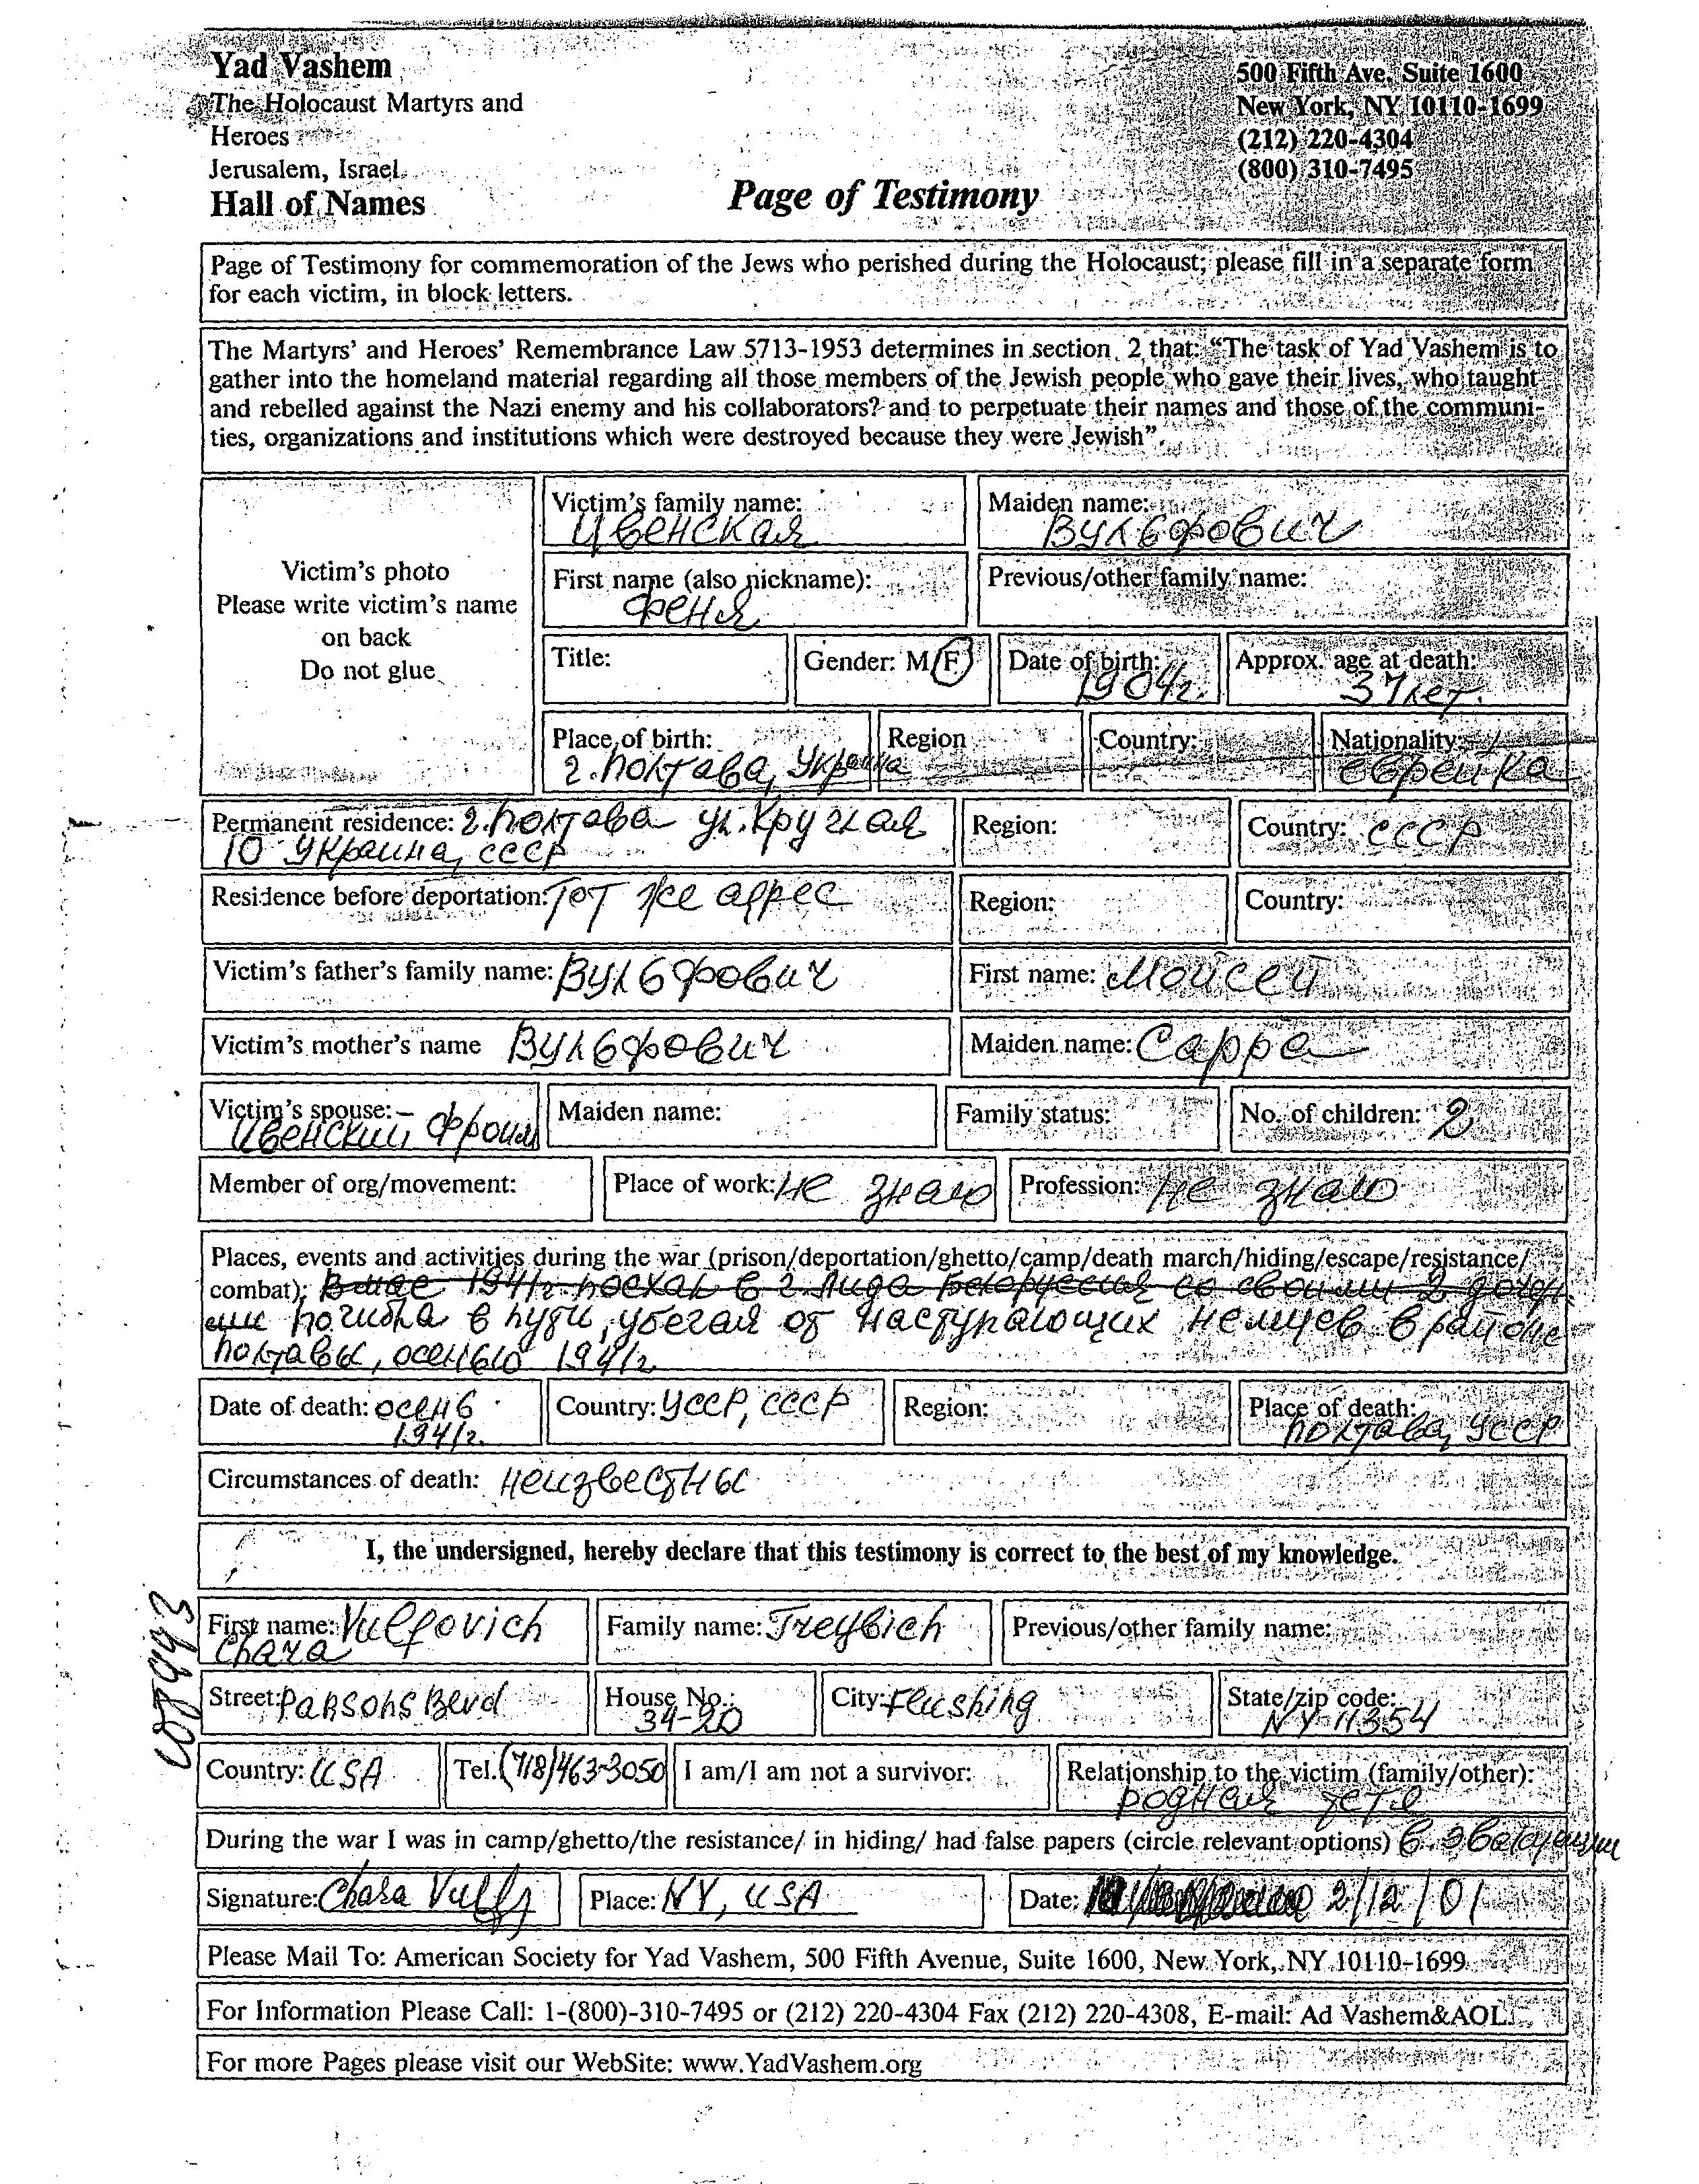 Yad Vashem
The Holocaust Martyrs and
Heroes
Jerusalem, Israel
Hall of Names
500 Fifth Ave, Suite 1600
New York, NY 10110-1699
(212) 220-4304
(800) 310-7495
Page of Testimony
Page of Testimony for commemoration of the Jews who perished during the Holocaust; please fill in a separate form
for each victim, in block letters.
The Martyrs' and Heroes' Remembrance Law 5713-1953 determines in section 2 that: "The task of Yad Vashem is to
gather into the homeland material regarding all those members of the Jewish people who gave their lives, who taught
and rebelled against the Nazi enemy and his collaborators? and to perpetuate their names and those of the communi-
ties, organizations and institutions which were destroyed because they were Jewish".
Victim's photo
Please write victim's name
on back
Do not glue
Victim's family name:
Цвенская
Maiden name:
Вульфович
First name (also nickname):
Феня
Previous/other family name:
Title:
Gender: M/F
Date of birth:
1904г.
Approx. age at death:
37 лет.
Place of birth:
г. Полтава, Украина
Region
Country:
Nationality:
еврейка
Permanent residence: г. Полтава ул. Круглая
10 Украина, СССР
Region:
Country: СССР
Residence before deportation: Тот же адрес
Region:
Country:
Victim's father's family name: Вульфович
First name: Моисей
Victim's mother's name Вульфович
Maiden name: Сарра
Victim's spouse: –
Цвенский Фроим
Maiden name:
Family status:
No. of children: 2
Member of org/movement:
Place of work: не знаю
Profession: не знаю
Places, events and activities during the war (prison/deportation/ghetto/camp/death march/hiding/escape/resistance/
combat): В мае 1941г. поехал в г. Лида Белоруссия со своими 2 дочерь
ми погибла в пути, убегая от наступающих немцев в районе
Полтавы, осенью 1941г.
Date of death: осень
1941г.
Country: УССР, СССР
Region:
Place of death:
Полтава, УССР
Circumstances of death: неизвестны
I, the undersigned, hereby declare that this testimony is correct to the best of my knowledge.
First name: Vulfovich
Chara
Family name: Treybich
Previous/other family name:
Street: Parsons Blvd
House No.:
34-20
City: Flushing
State/zip code:
NY 11354
Country: USA
Tel. (718)463-3050
I am/I am not a survivor:
Relationship to the victim (family/other):
родная тетя
During the war I was in camp/ghetto/the resistance/ in hiding/ had false papers (circle relevant options) в эвакуации
Signature: Chara Vulf
Place: NY, USA
Date: 2/12/01
Please Mail To: American Society for Yad Vashem, 500 Fifth Avenue, Suite 1600, New York, NY 10110-1699
For Information Please Call: 1-(800)-310-7495 or (212) 220-4304 Fax (212) 220-4308, E-mail: Ad Vashem&AOL.
For more Pages please visit our WebSite: www.YadVashem.org